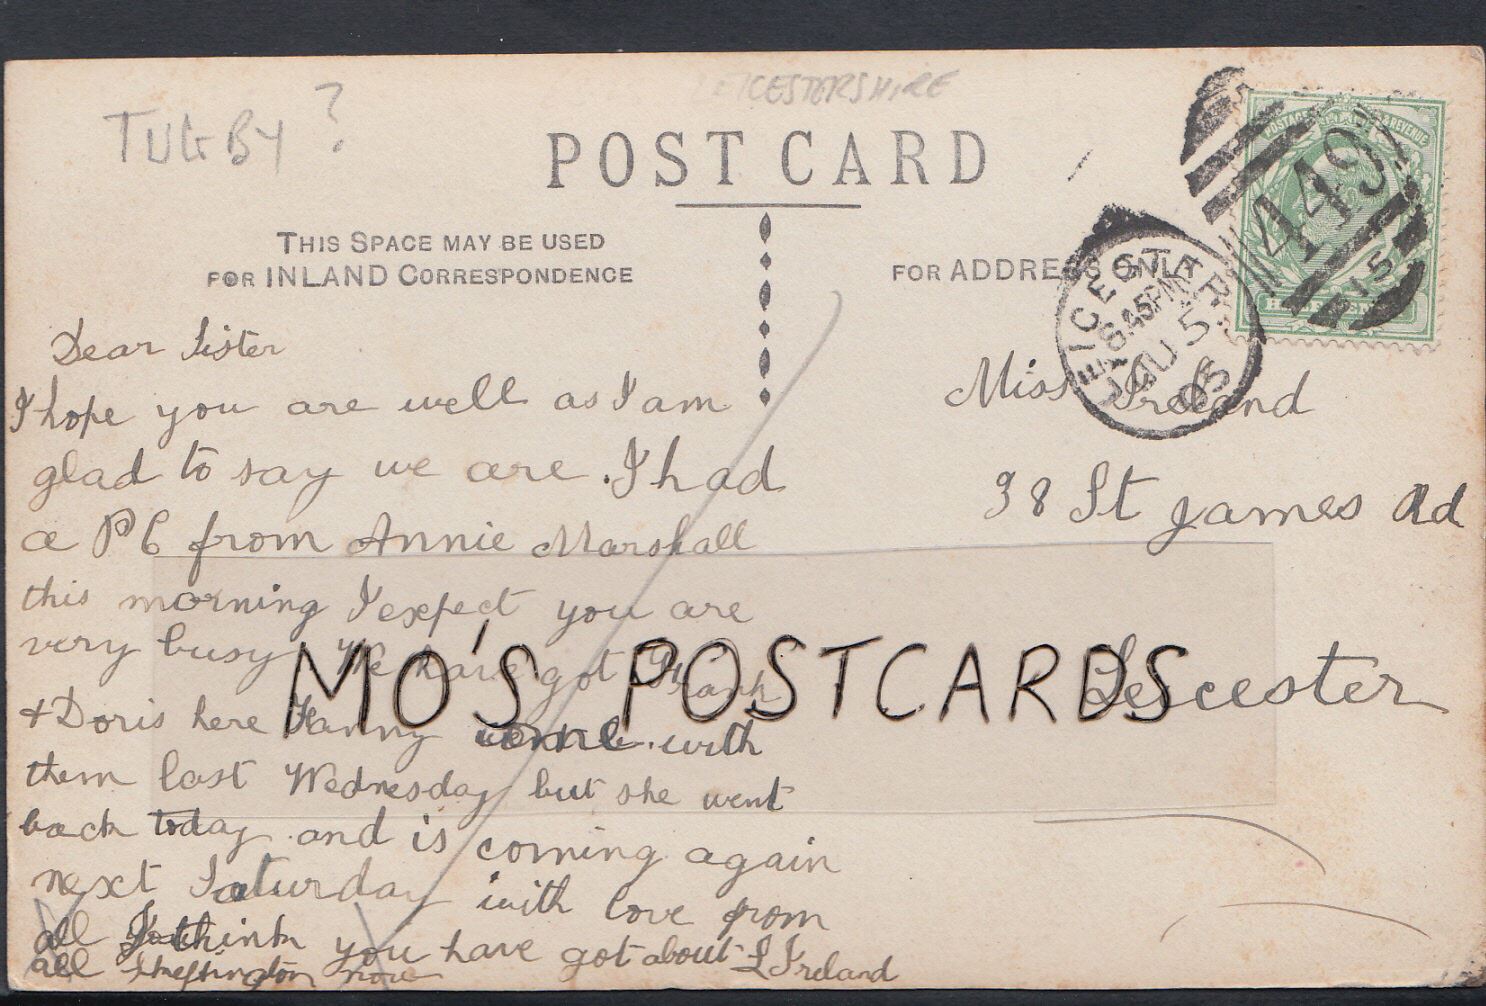 LEICESTERSHIRE
TUGBY ?
POST CARD
THIS SPACE MAY BE USED
FOR INLAND CORRESPONDENCE
FOR ADDRESS ONLY
POSTAGE REVENUE
449
LEICESTER
6.45PM
JU 5
05
Dear Sister
I hope you are well as I am
glad to say we are . I had
a PC from Annie Marshall
this morning I expect you are
very busy We have got Frank
+ Doris here Fanny come with
them last Wednesday but she went
back today and is coming again
next Saturday with love from
all I think you have got about L Ireland
all Skeffington now
Miss Ireland
38 St James Rd
Leicester
MO'S POSTCARDS